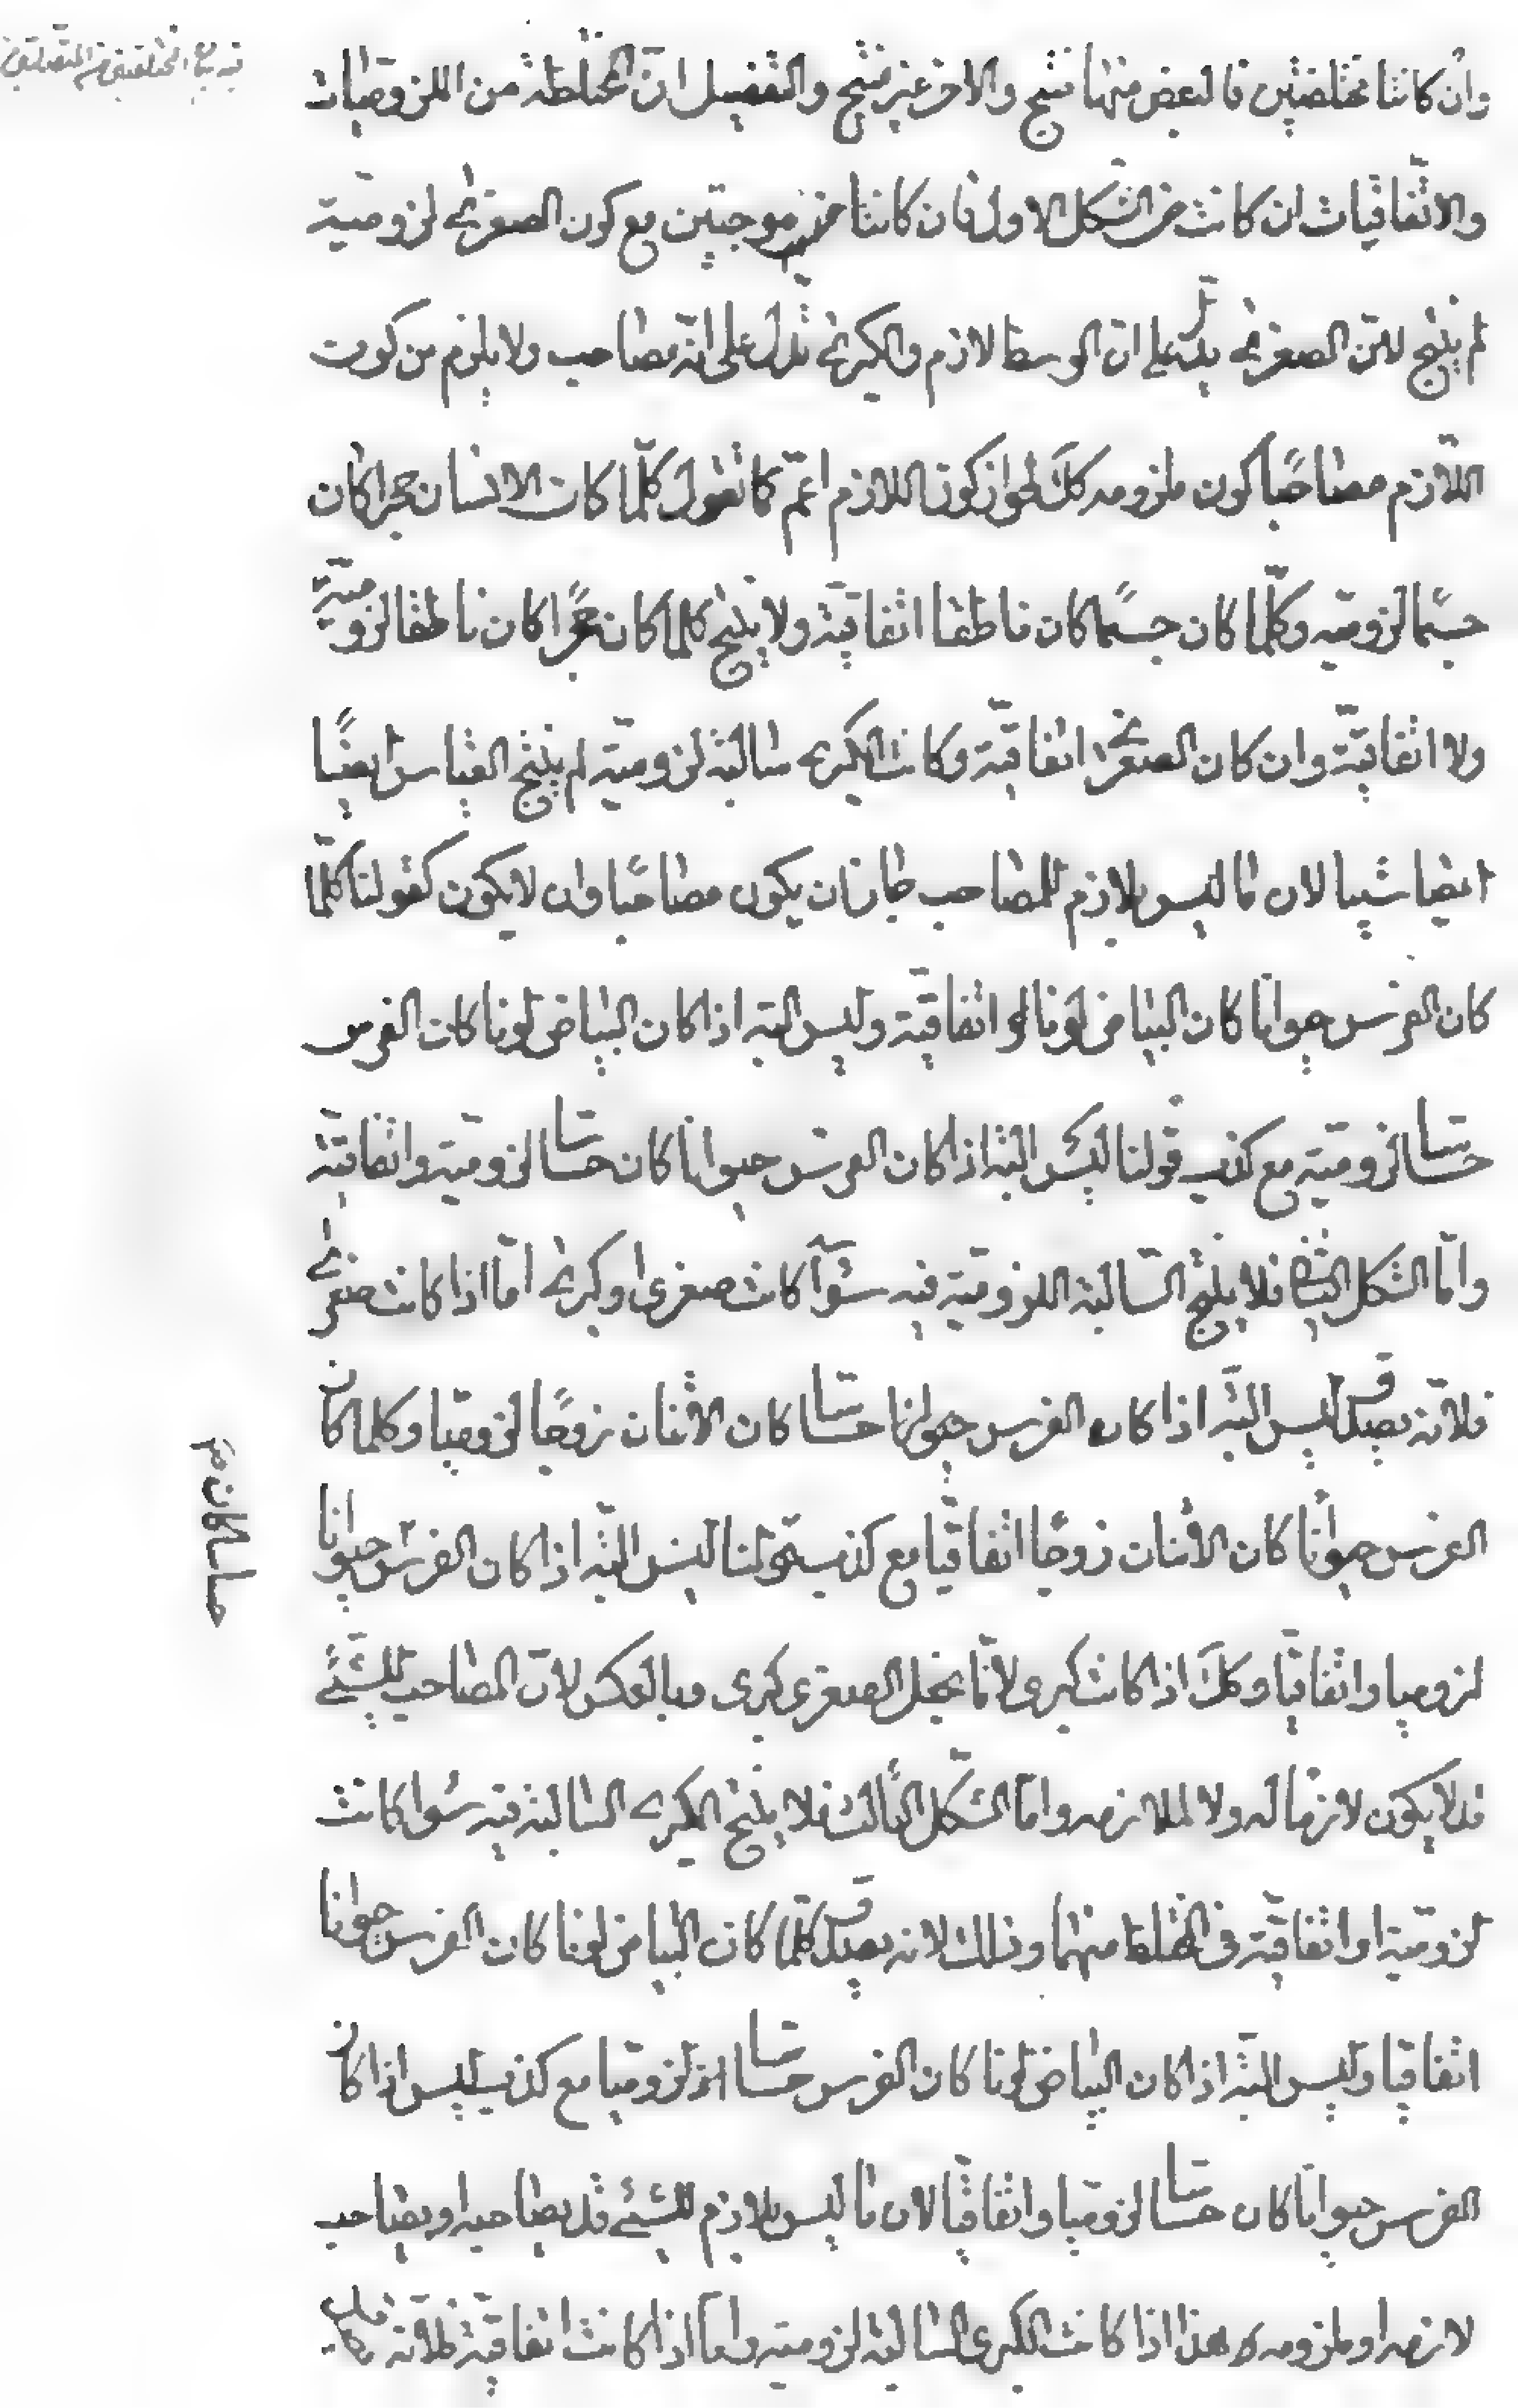 وان كانتا مختلفتين فالبعض منهما منتج والاخر غير منتج والتفصيل ان المختلطة من اللزوميات
والاتفاقيات ان كانت من الشكل الاول فان كانتا موجبتين مع كون الصغرى لزومية
لم ينتج لان الصغرى يدل على ان الوسط لازم والكبرى تدل على انه مصاحب ولا يلزم من كون
اللازم مصاحبًا كون ملزومه كك لجواز كون اللازم اعم كما تقول كلما كان الانسان حجرا كان
جسمًا لزومية وكلما كان جسمًا كان ناطقا اتفاقية ولا ينتج كلما كان حجرًا كان ناطقا لزومية
ولا اتفاقية وان كان الصغرى اتفاقية وكانت الكبرى سالبة لزومية لم ينتج القياس ايضًا
ايضا شيئا لان ما ليس بلازم للمصاحب جاز ان يكون مصاحبًا وان لا يكون كقولنا كلما
كان الفرس حيوانا كان البياض لونا اتفاقية وليس البتة اذا كان البياض لونا كان الفرس
حساسا لزومية مع كذب قولنا ليس البتة اذا كان الفرس حيوانا كان حساسا لزومية واتفاقية
واما الشكل الثاني فلا ينتج السالبة اللزومية فيه سوآء كانت صغرى او كبرى اما اذا كانت صغرى
فلانه يصدق ليس البتة اذا كان الفرس حيوانا حساسا كان الاثنان زوجًا لزوميا وكلما كان
الفرس حيوانا كان الاثنان زوجًا اتفاقيا مع كذب قولنا ليس البتة اذا كان الفرس حيوانا
لزوميا واتفاقيا وكك اذا كانت كبرى لانا نجعل الصغرى كبرى وبالعكس لان المصاحب للشئ
قد لا يكون لازما له ولا لملازمه واما الشكل الثالث فلا ينتج الكبرى السالبة فيه سوا كانت
لزومية او اتفاقية في المختلط منهما وذلك لانه يصدق كلما كان البياض لونا كان الفرس حيوانا
اتفاقيا وليس البتة اذا كان البياض لونا كان الفرس حساسا لزوميا مع كذب ليس اذا كان
الفرس حيوانا كان حساسا لزوميا واتفاقيا لان ما ليس بلازم للشئ قد يصاحبه او يصاحب
لازمه او ملزومه هذا اذا كانت الكبرى السالبة لزومية واما اذا كانت اتفاقية فلانه
حساسا كان